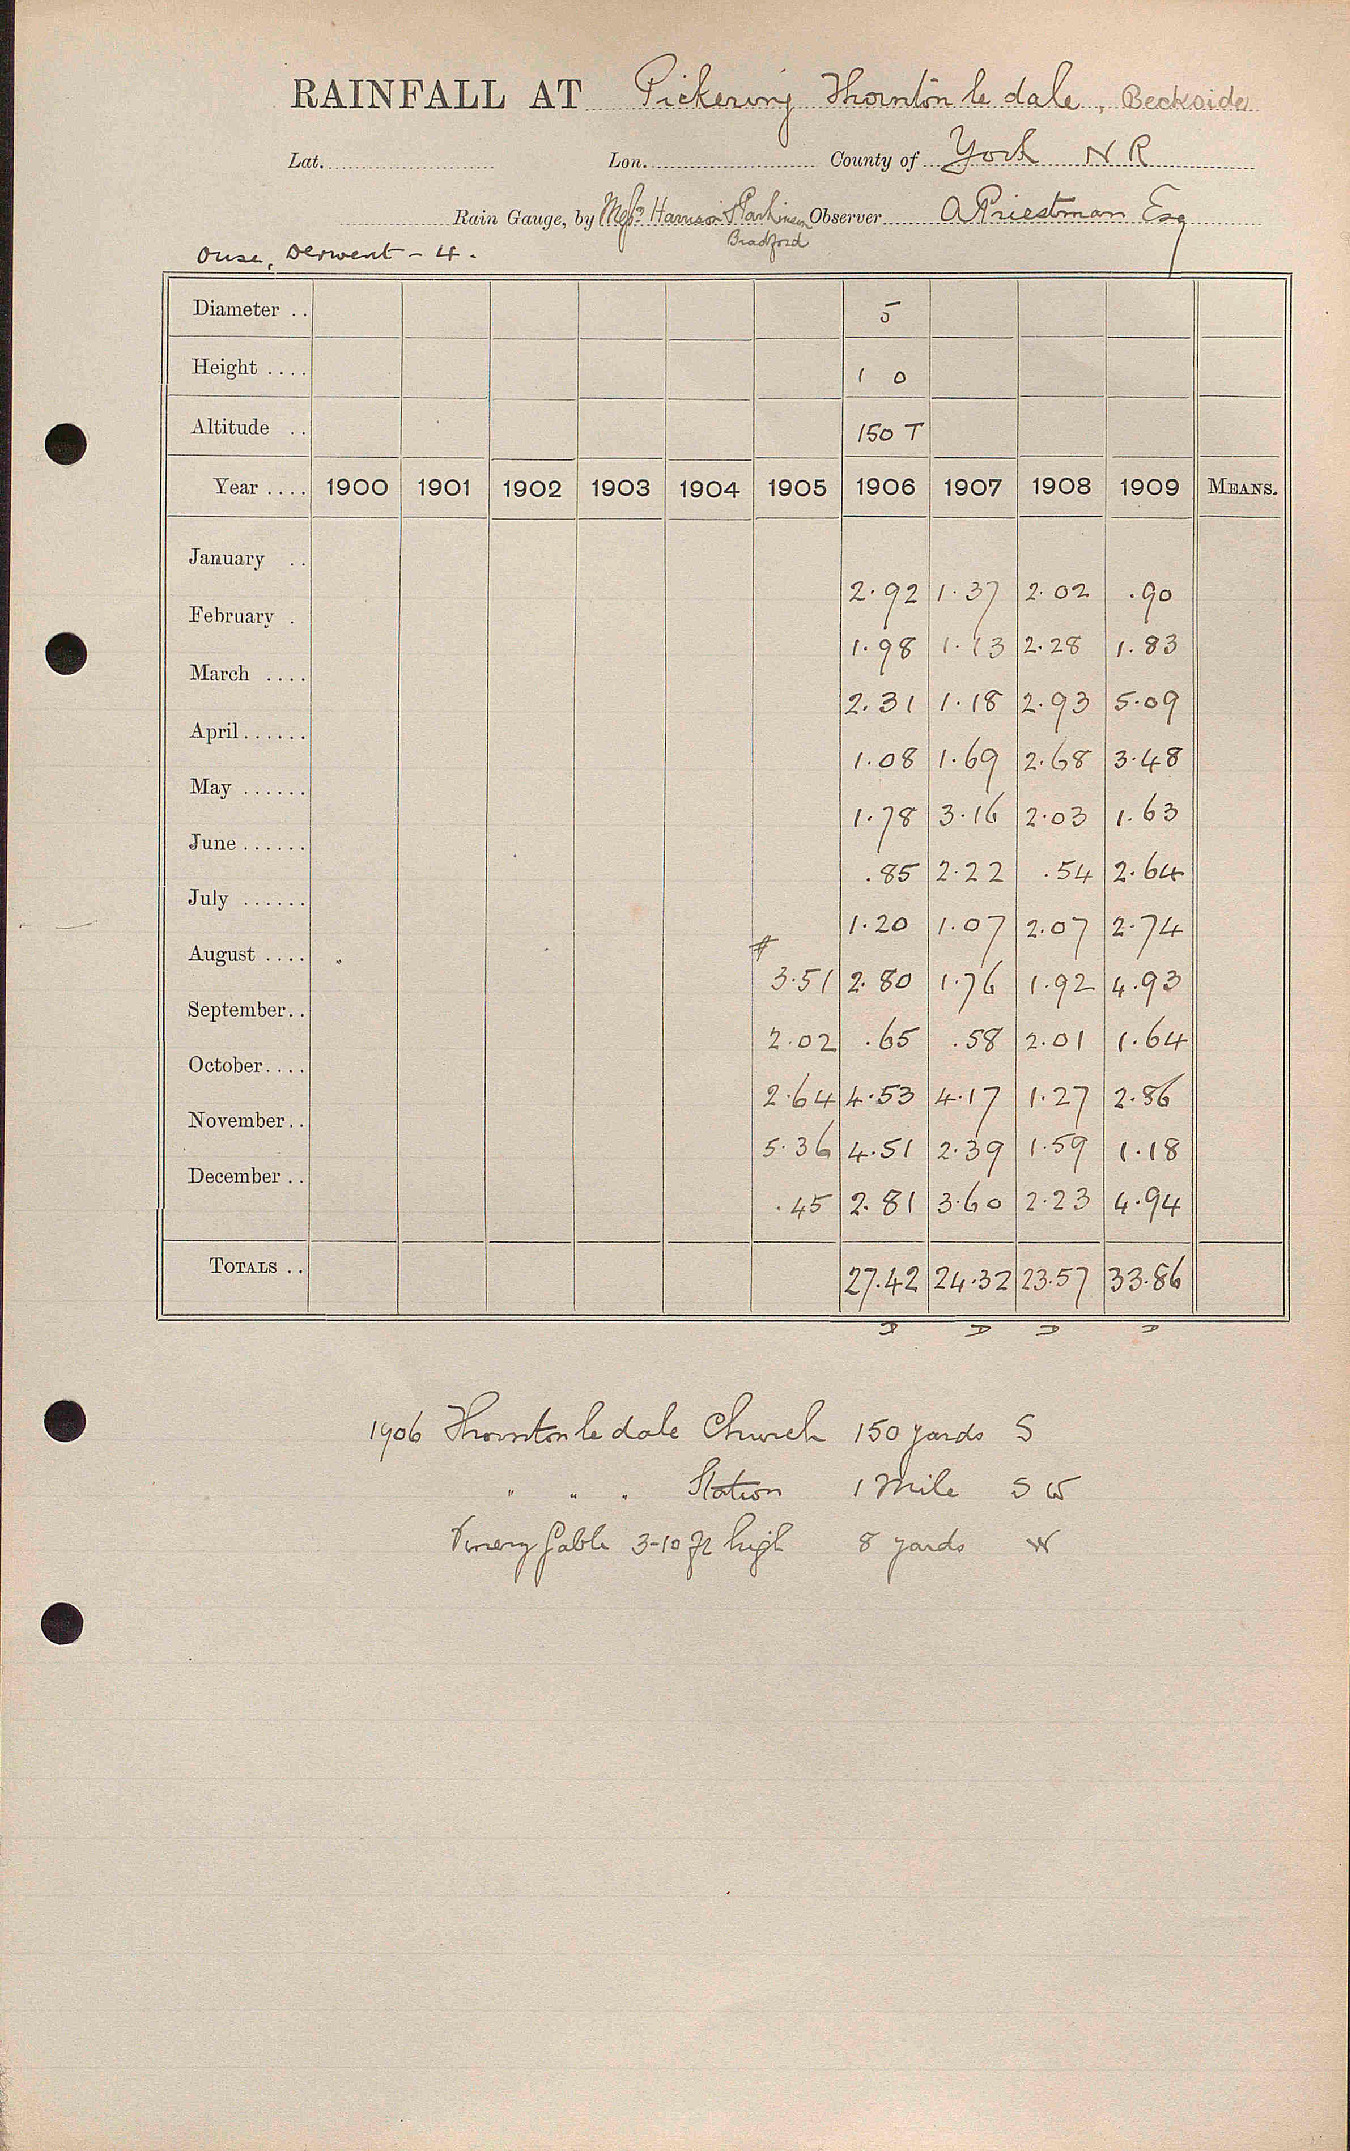 RAINFALL AT Pickering Thornton le dale, Beckside
Lat. Lon. County of York N R
Rain Gauge, by Messrs Harrison Parkinson Observer A Priestman Esq
Bradford
Ouse, Derwent - 4.
Diameter .. 5
Height .... 1 0
Altitude .. 150 T
Year .... 1900 1901 1902 1903 1904 1905 1906 1907 1908 1909 MEANS.
January .. 2.92 1.37 2.02 .90
February . 1.98 1.13 2.28 1.83
March .... 2.31 1.18 2.93 5.09
April...... 1.08 1.69 2.68 3.48
May ...... 1.78 3.16 2.03 1.63
June ...... .85 2.22 .54 2.64
July ...... 1.20 1.07 2.07 2.74
August .... # 3.51 2.80 1.76 1.92 4.93
September.. 2.02 .65 .58 2.01 1.64
October.... 2.64 4.53 4.17 1.27 2.86
November.. 5.36 4.51 2.39 1.59 1.18
December .. .45 2.81 3.60 2.23 4.94
TOTALS .. 27.42 24.32 23.57 33.86
1906 Thornton le dale Church 150 yards S
" " " Station 1 Mile S W
Vinery Gable 3-10 ft high 8 yards W